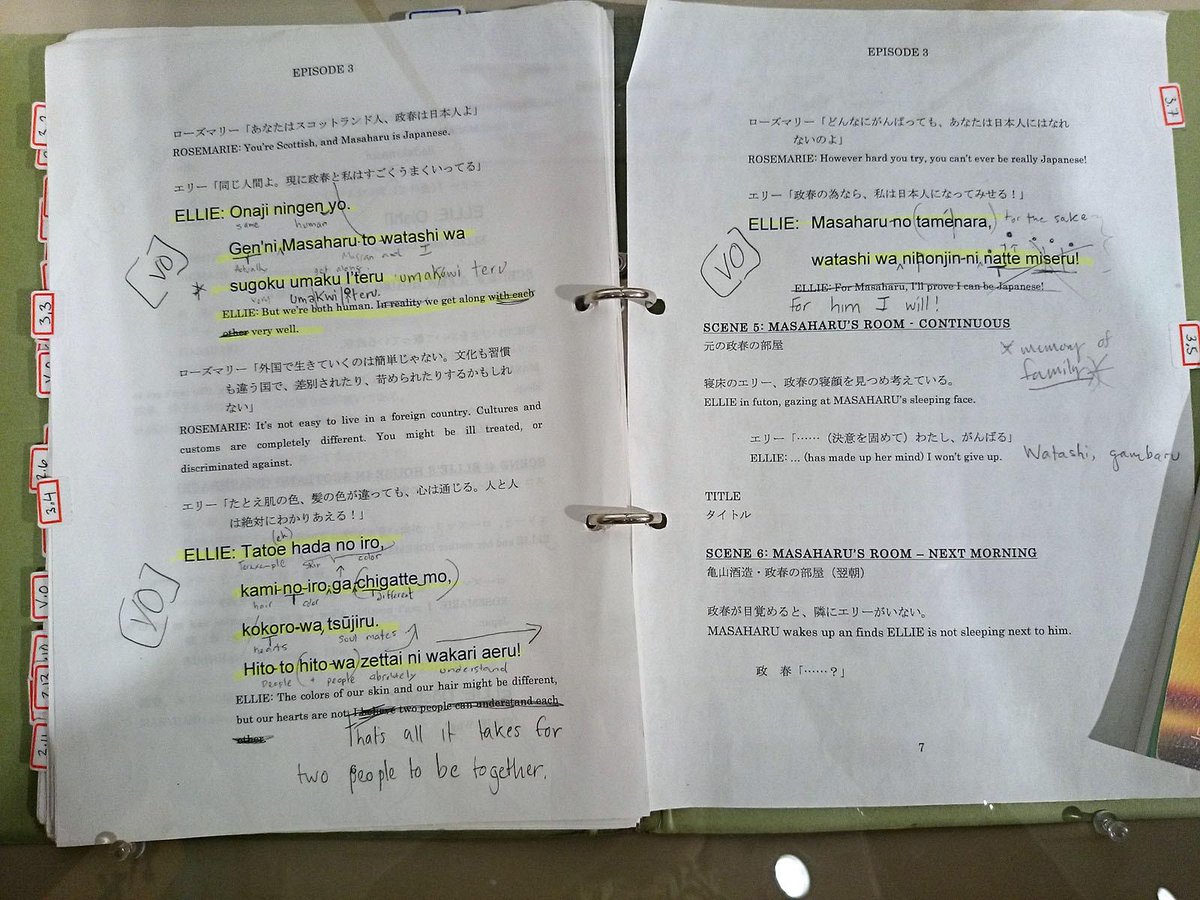 EPISODE 3
ローズマリー「あなたはスコットランド人、政春は日本人よ」
ROSEMARIE: You're Scottish, and Masaharu is Japanese.
エリー「同じ人間よ。現に政春と私はすごくうまくいってる」
ELLIE: Onaji ningen yo.
same human
Gen'ni Masaharu to watashi wa
Actually get along Massan and I
VO
* sugoku umaku I'teru umakuwi teru
very umakwiiteru.
ELLIE: But we're both human. In reality we get along with each
other very well.
ローズマリー「外国で生きていくのは簡単じゃない。文化も習慣
も違う国で、差別されたり、苛められたりするかもしれ
ない」
ROSEMARIE: It's not easy to live in a foreign country. Cultures and
customs are completely different. You might be ill treated, or
discriminated against.
エリー「たとえ肌の色、髪の色が違っても、心は通じる。人と人
は絶対にわかりあえる！」
(eh)
ELLIE: Tatoe hada no iro,
skin color
kami no-iro ga chigatte mo,
hair color different
VO
kokoro-wa tsūjiru.
hearts Soul mates
Hito to hito-wa zettai ni wakari aeru!
People + people absolutely understand
ELLIE: The colors of our skin and our hair might be different,
but our hearts are not. I believe two people can understand each
other.
Thats all it takes for
two people to be together.
3.3
2.6
3.4
V.O
2.11
EPISODE 3
ローズマリー「どんなにがんばっても、あなたは日本人にはなれ
ないのよ」
ROSEMARIE: However hard you try, you can't ever be really Japanese!
エリー「政春の為なら、私は日本人になってみせる！」
ELLIE: Masaharu no tamenara, for the sake
VO
watashi wa nihonjin-ni natte miseru!
ELLIE: For Masaharu, I'll prove I can be Japanese!
For him I will!
SCENE 5: MASAHARU'S ROOM - CONTINUOUS
元の政春の部屋
* memory of
family *
寝床のエリー、政春の寝顔を見つめ考えている。
ELLIE in futon, gazing at MASAHARU's sleeping face.
エリー「……（決意を固めて）わたし、がんばる」
ELLIE: ... (has made up her mind) I won't give up. Watashi, gambaru
TITLE
タイトル
SCENE 6: MASAHARU'S ROOM – NEXT MORNING
亀山酒造・政春の部屋（翌朝）
政春が目覚めると、隣にエリーがいない。
MASAHARU wakes up an finds ELLIE is not sleeping next to him.
政　春「……？」
7
3.7
3.5